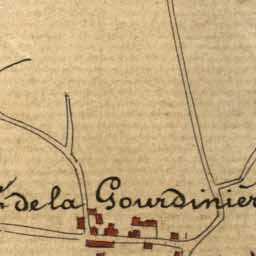 de la Gourdinièr